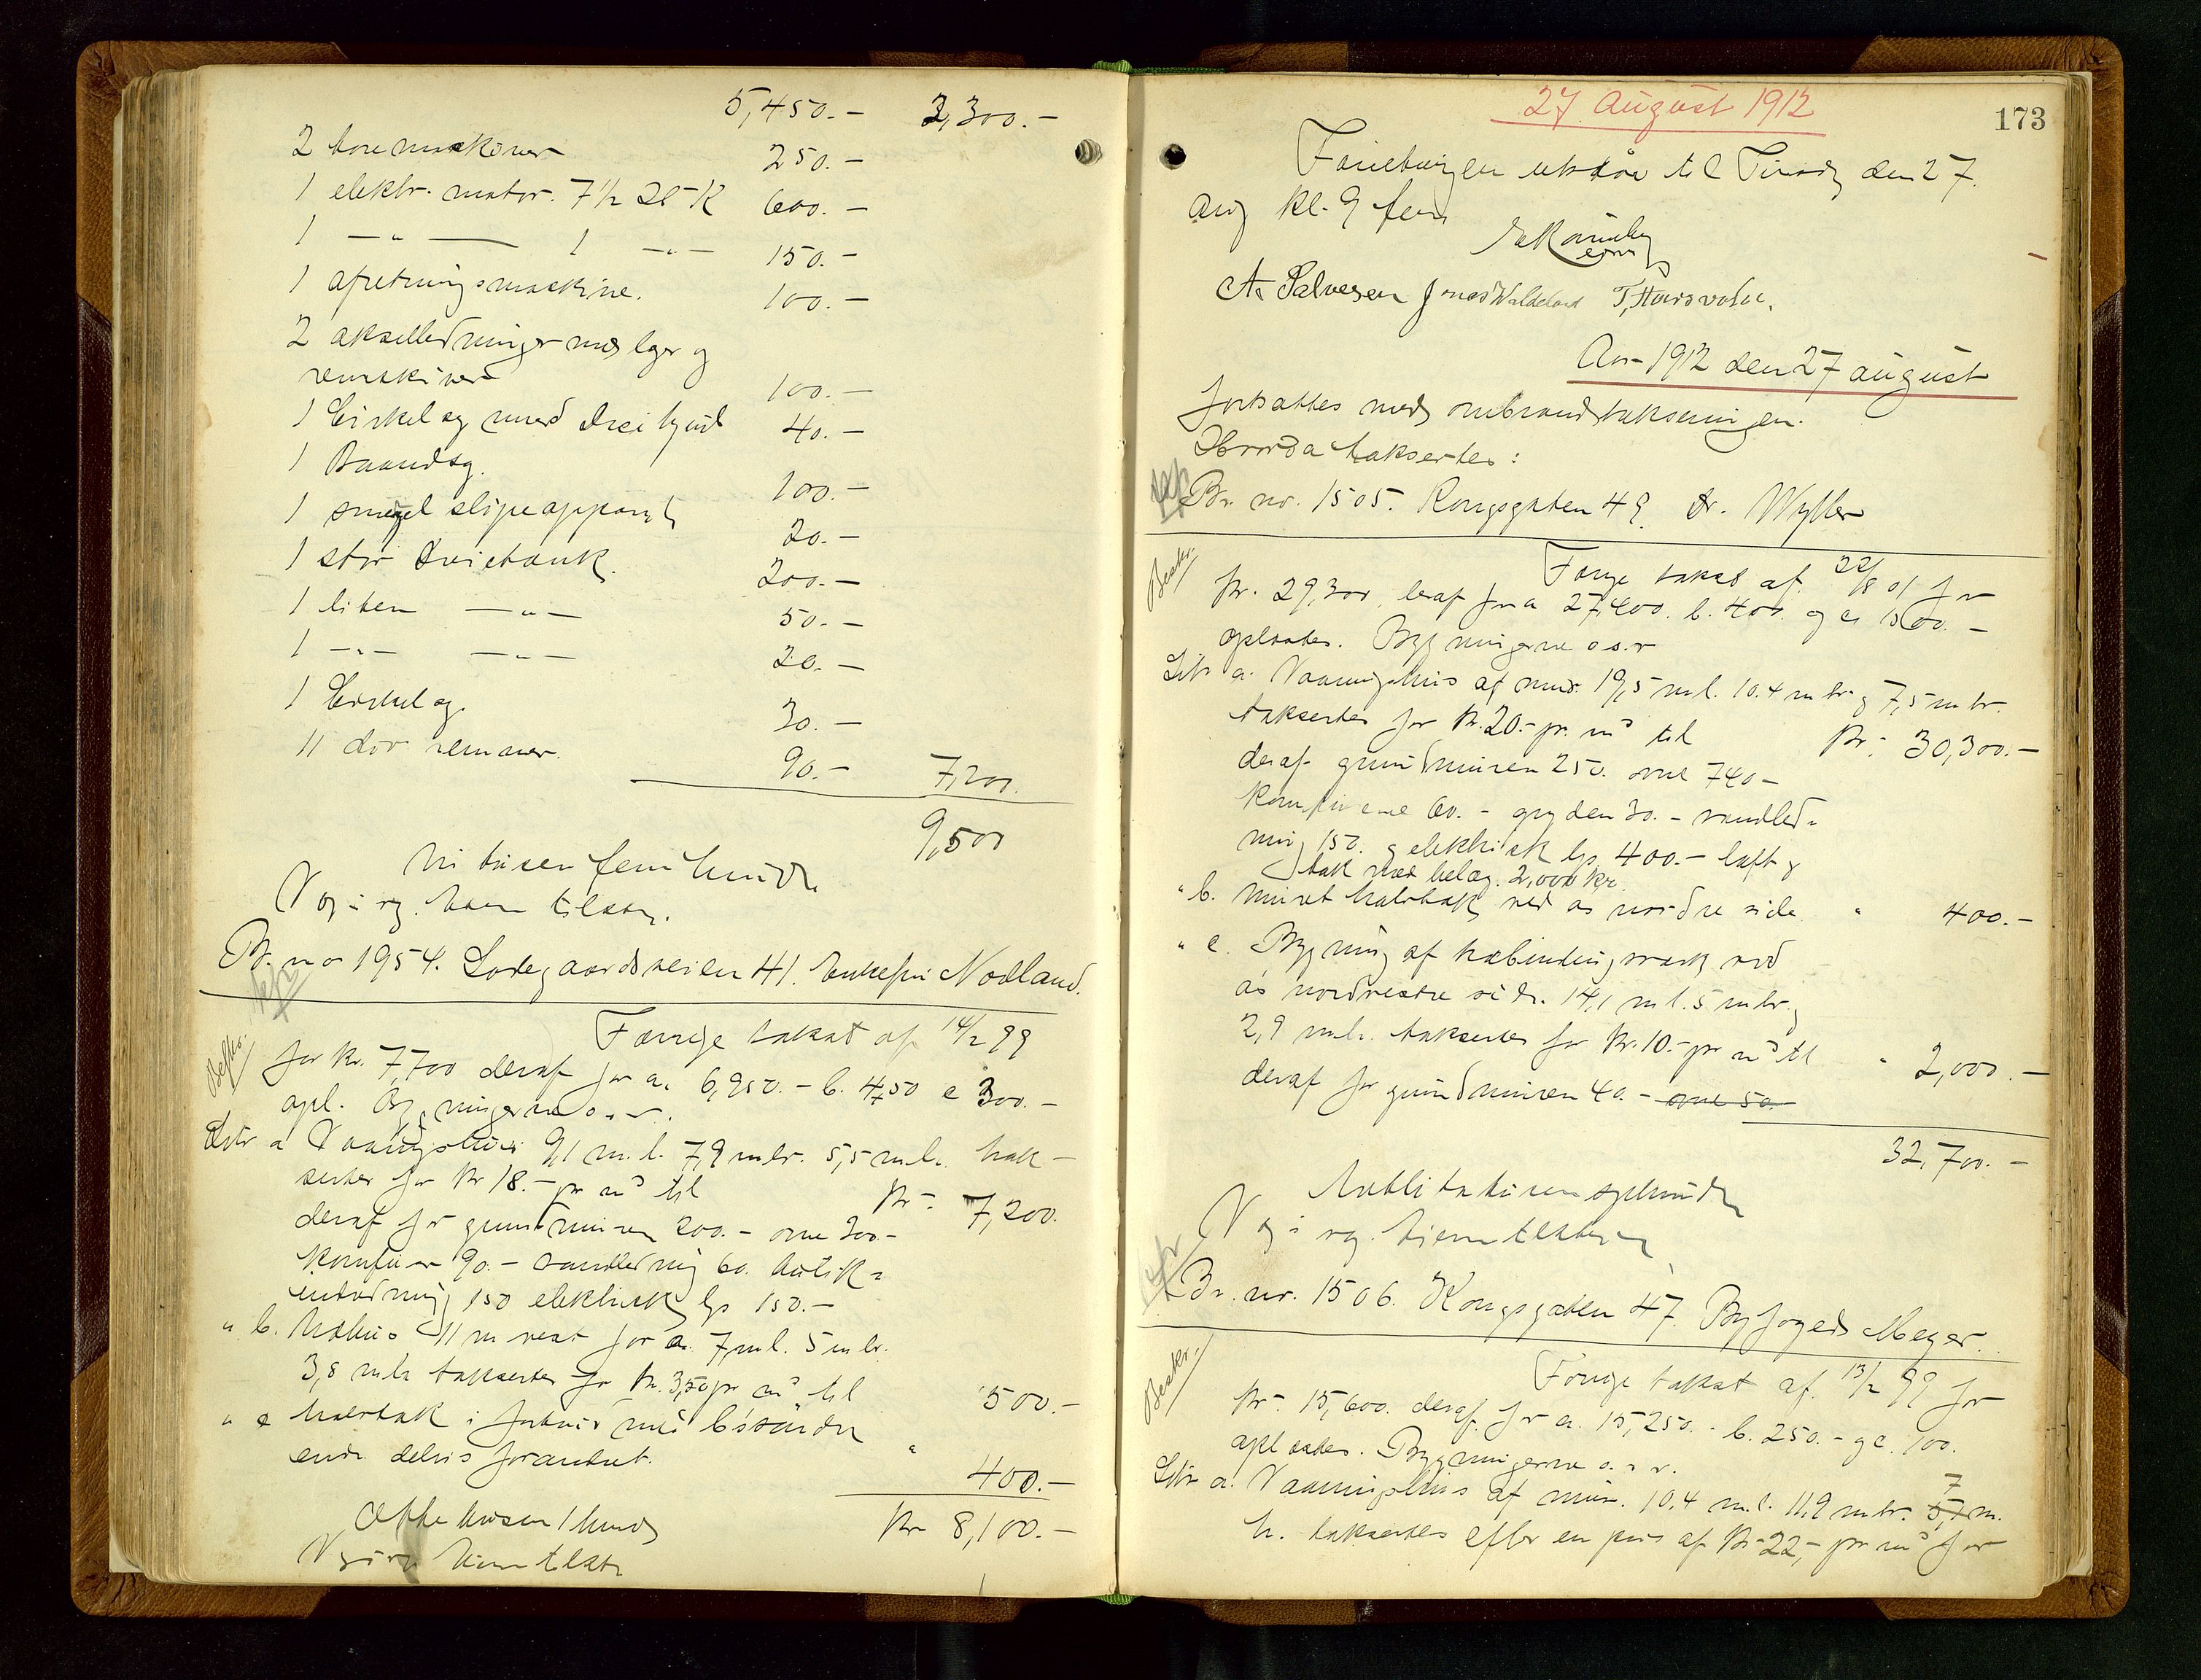 5,450.- 2,300.-
2 boremaskiner 250.-
1 elektr. motor. 7 1/2 HK 600.-
1 -"- 1 -"- 150.-
1 afretningsmaskine. 100.-
2 akselledninger med lager og
remskiver 100.-
1 Cirkelsag med 40.-
1 Baandsag. 100.-
1 smergel slipeapparat 20.-
1 stor Dreiebænk. 200.-
1 liten -"- 50.-
1 -"- -"- 20.-
1 Cirkelsag. 30.-
11 remmer. 90.- 7,200.
9,500
Ni tusen fem hundre
V og i rg. hiem tilstr.
Br. no 1954. Ladegaardsveien 41. Enkefru Nodland.
kfr
Forrige takst af 14/2 99
Beskr.
for kr. 7,700 deraf for a. 6,950.- b. 450 c 300.-
opl. Bygningerne o.s.v.
Litr a Vaaningshus 9,1 m.l. 7,9 mbr. 5,5 m.h. tak-
sertes for kr 18.- pr m³ til kr: 7,200.
deraf for grundmuren 200.- ovne 300.-
komfur 90.- vandledning 60. butik-
indredning 150 elektrisk lys 150.-
" b. Uthus 11 m vest for a. 7 m.l. 5 mbr.
3,8 m.h. taksertes for kr. 3,50 pr m³ til 500.-
" c halvtak i forbind med b's søndre
ende delvis forandret. " 400.-
kr 8,100.-
Otte tusen 1 hundr
V og i rg hiem tilstr
27 August 1912
173
Forretningen utstaar til Tirsdag den 27.
aug kl. 9 form
A. Salvesen Jonas Waldeland T, Hausvoldt.
Aar 1912 den 27 august
fortsattes med ombrandtakseringen.
Hvorda taksertes:
kfr
Br. no. 1505. Kongsgaten 49. Dr. Wyller
Beskr.
Forrige takst af 22/8 01 for
kr. 29,300, deraf for a 27,400. b. 400. og c 1500.-
oplæstes. Bygningerne o.s.v
Litr a. Vaaningshus af mur 19,5 m l. 10.4 mbr og 7,5 m br.
taksertes for kr. 20.- pr. m³ til kr: 30,300.-
deraf grundmuren 250. ovne 740-
komfurene 60.- gryden 30.- vandled-
ning 150. og elektrisk lys 400.- loft og
tak med belæg. 2,000 kr.
" b. Muret halvtak ved as nordre side. " 400.-
" c. Bygning af træbindingsverk ved
as nordvestre side. 14,1 m l. 5 mbr. og
2,9 m.h. taksertes for kr. 10.- pr m³ til " 2,000.-
deraf for grundmuren 40.- ovne 50.-
32,700.-
Trettito tusen syvhundr
V og i rg. hiem tilstr
kfr
Br. nr. 1506. Kongsgaten 47. Byfoged Meyer.
Beskr.
Forrige takst af 13/2 99 for
kr: 15,600. deraf for a. 15,250.- b. 250.- og c. 100.
oplæstes. Bygningerne o.s.v.
Litr a. Vaaningshus af mur. 10,4 m.l. 11,9 mbr. 7 5,7 m.
h. taksertes efter en pris af kr 22,- pr m³ for